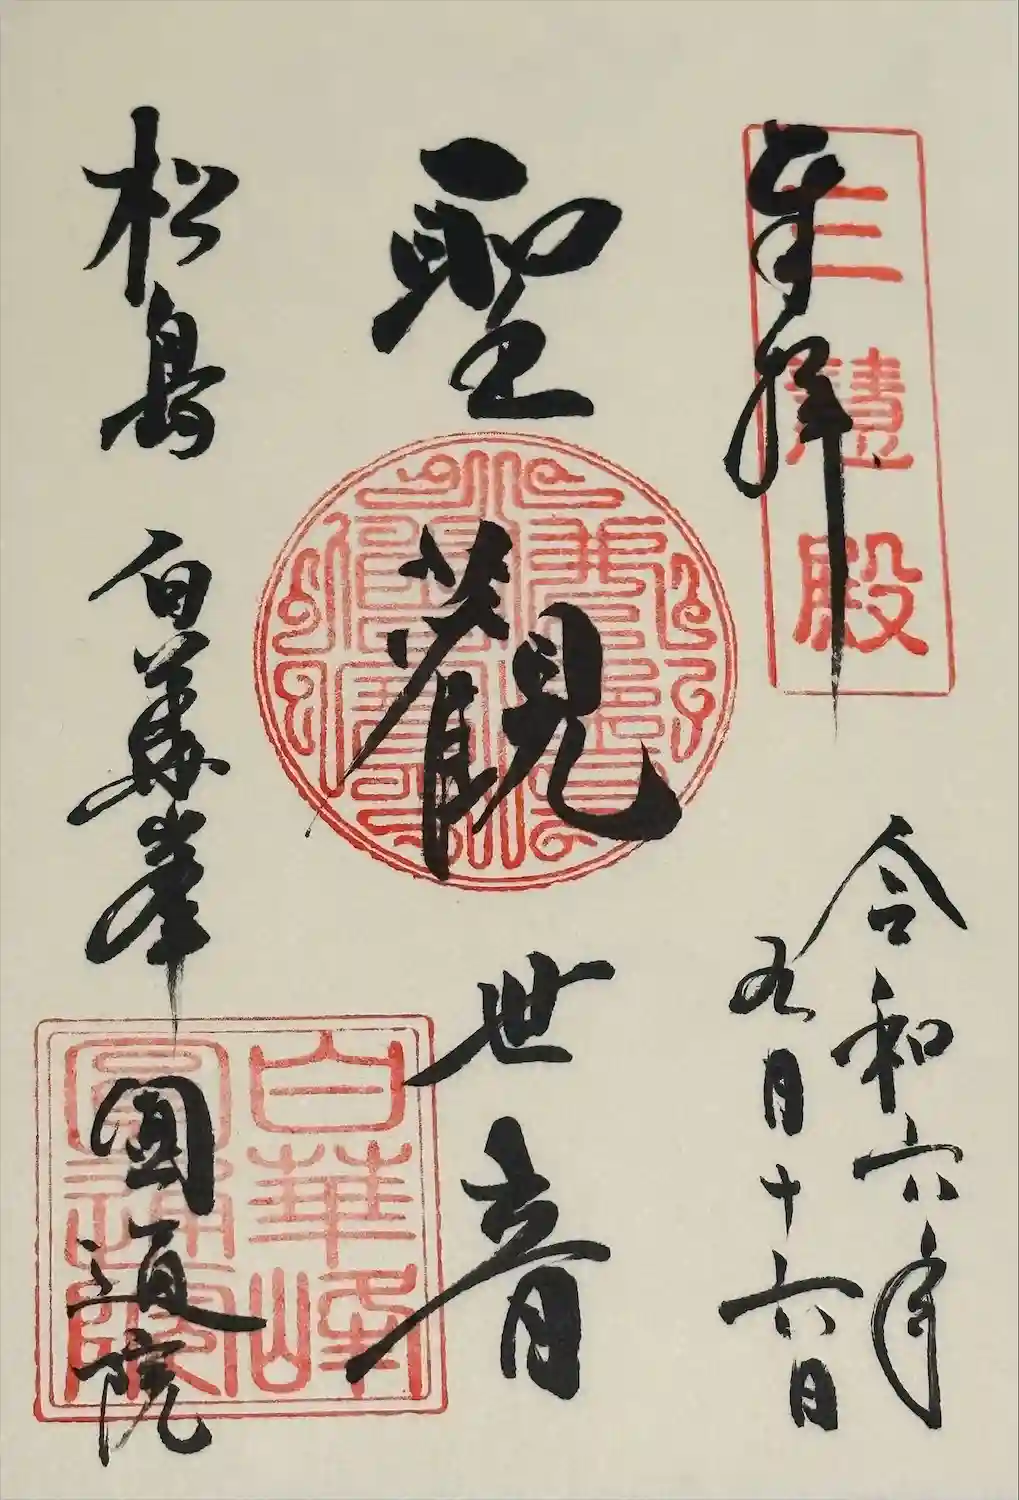 奉拝
三慧殿
令和六年
九月十六日
聖觀世音
松島 白華峯 圓通院
白華峰
圓通院